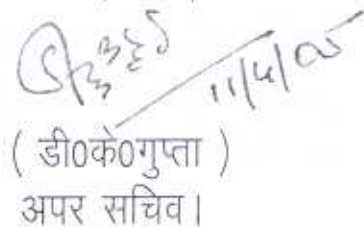 11/4/05
( डी0के0गुप्ता )
अपर सचिव।